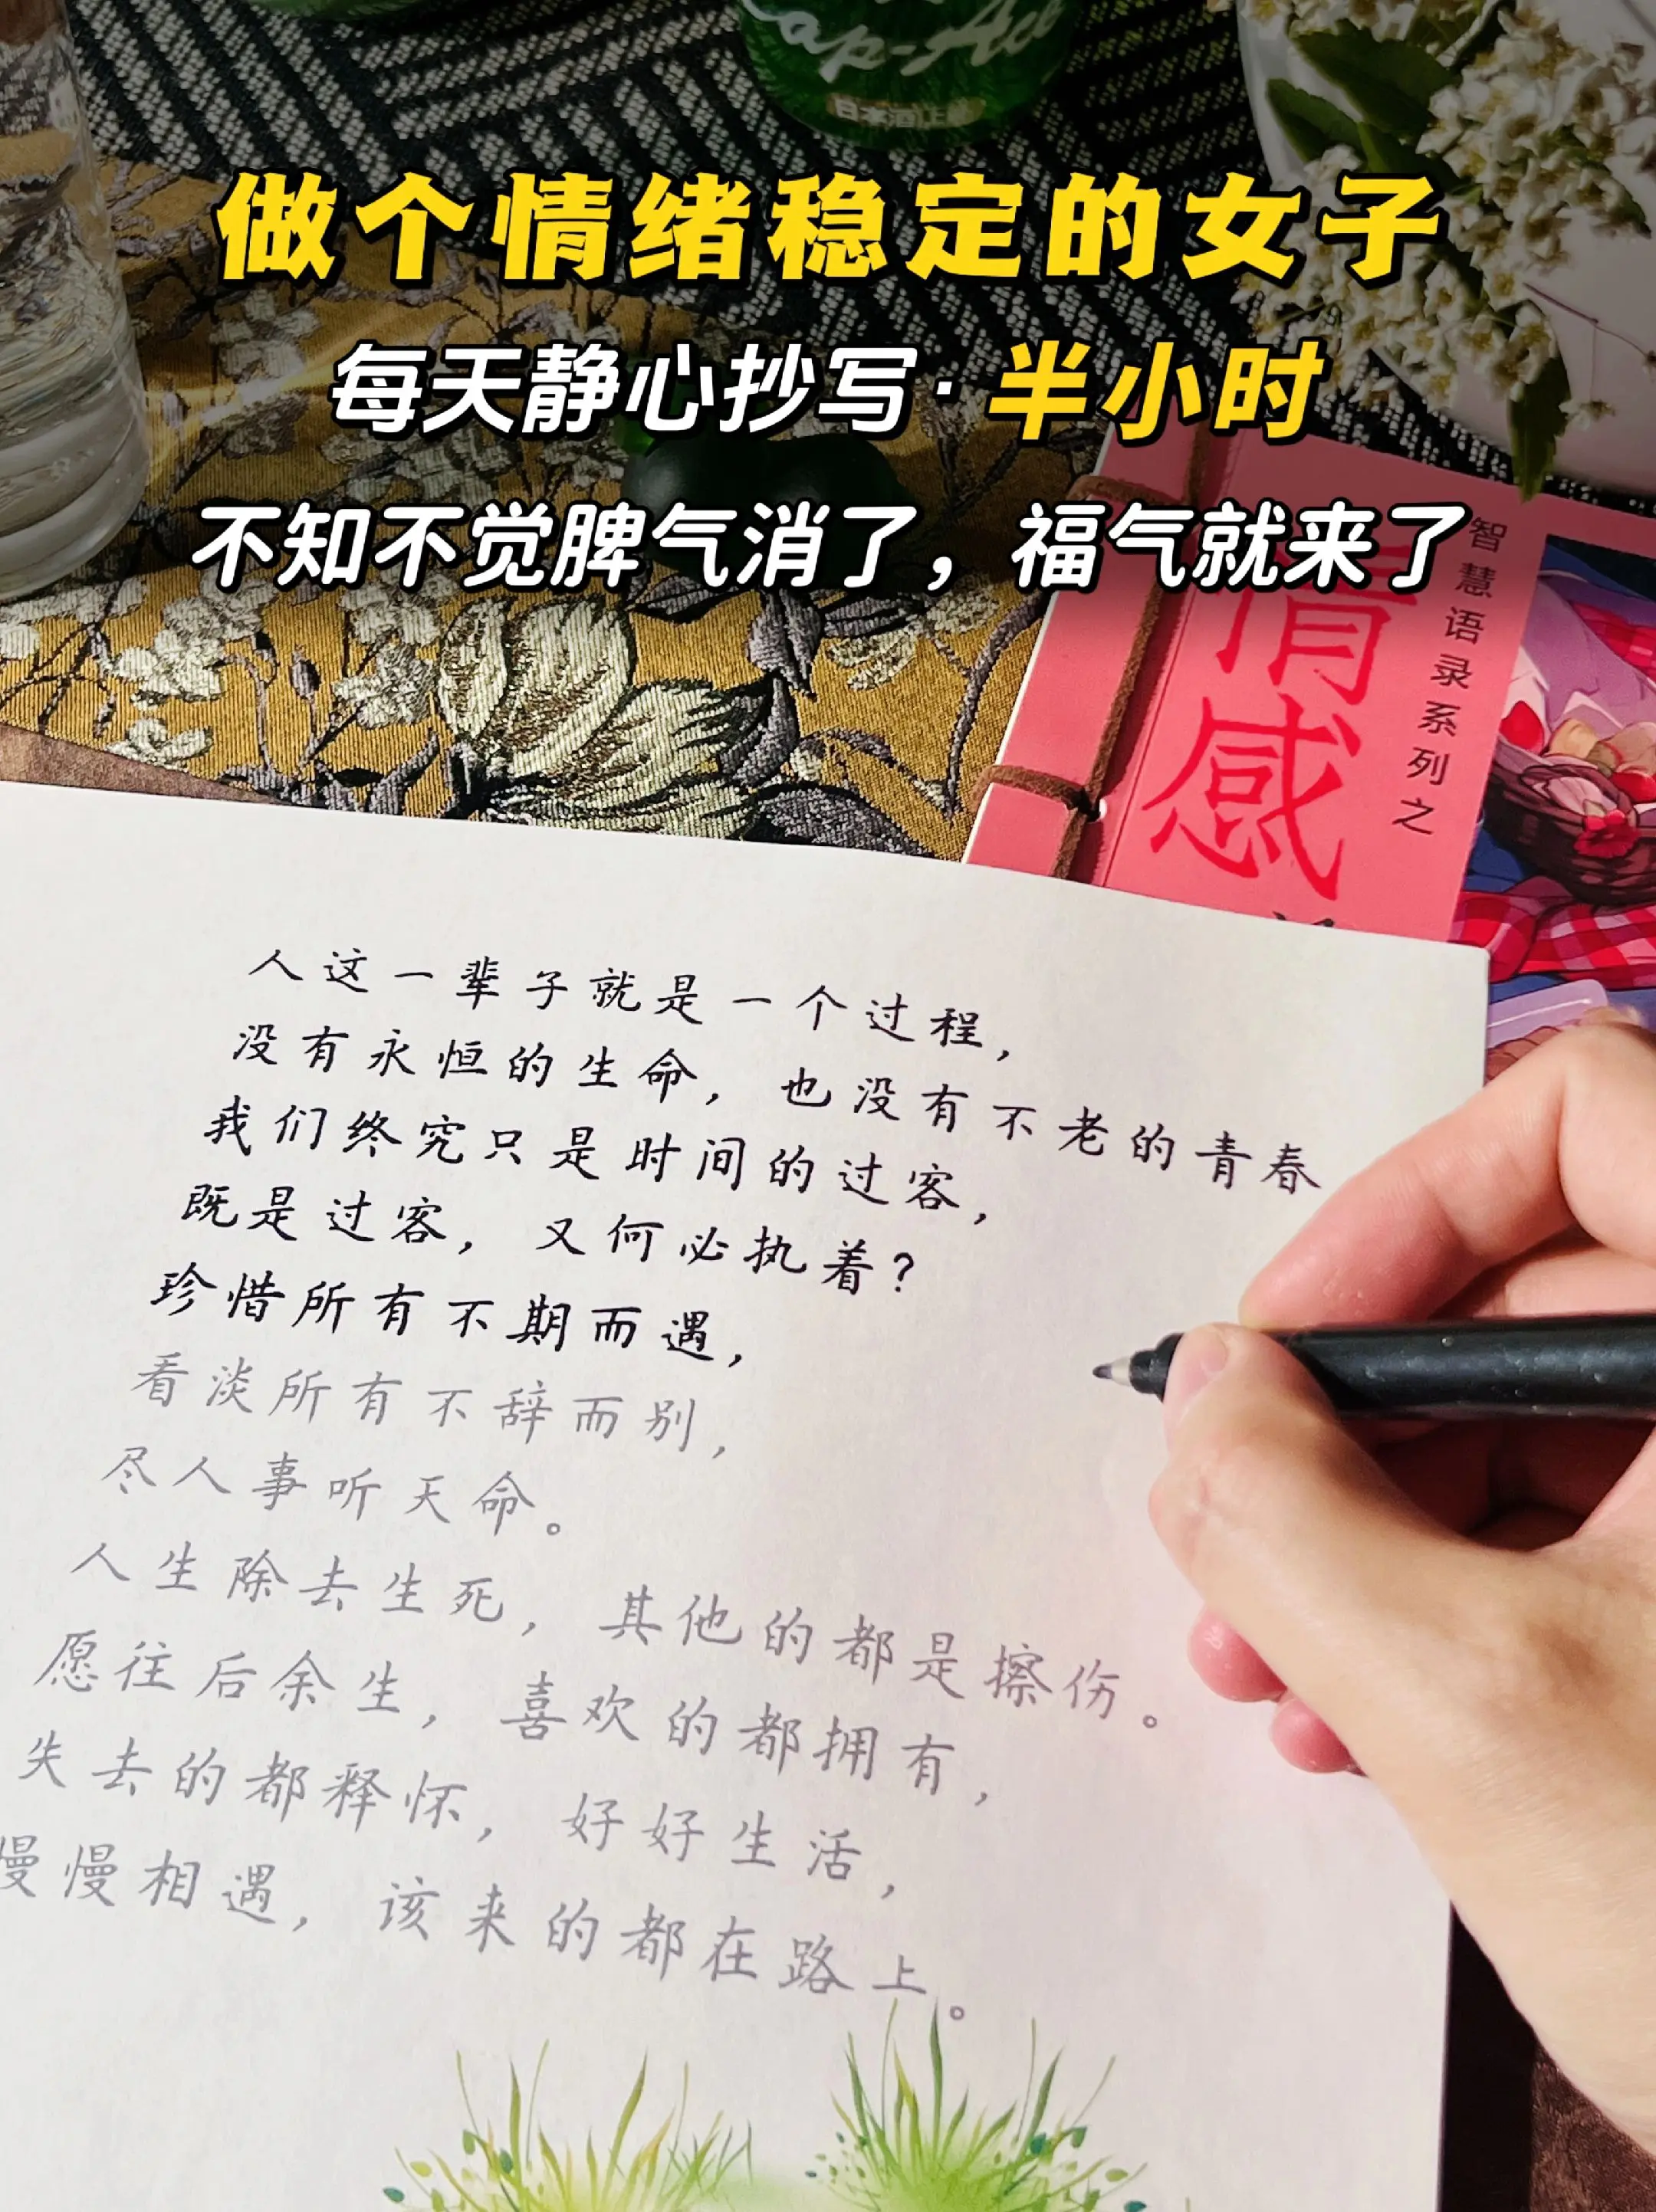 日本酒
做个情绪稳定的女子
每天静心抄写·半小时
不知不觉脾气消了，福气就来了
智慧语录系列之
情感
人这一辈子就是一个过程，
没有永恒的生命，也没有不老的青春
我们终究只是时间的过客，
既是过客，又何必执着？
珍惜所有不期而遇，
看淡所有不辞而别，
尽人事听天命。
人生除去生死，其他的都是擦伤。
愿往后余生，喜欢的都拥有，
失去的都释怀，好好生活，
慢慢相遇，该来的都在路上。